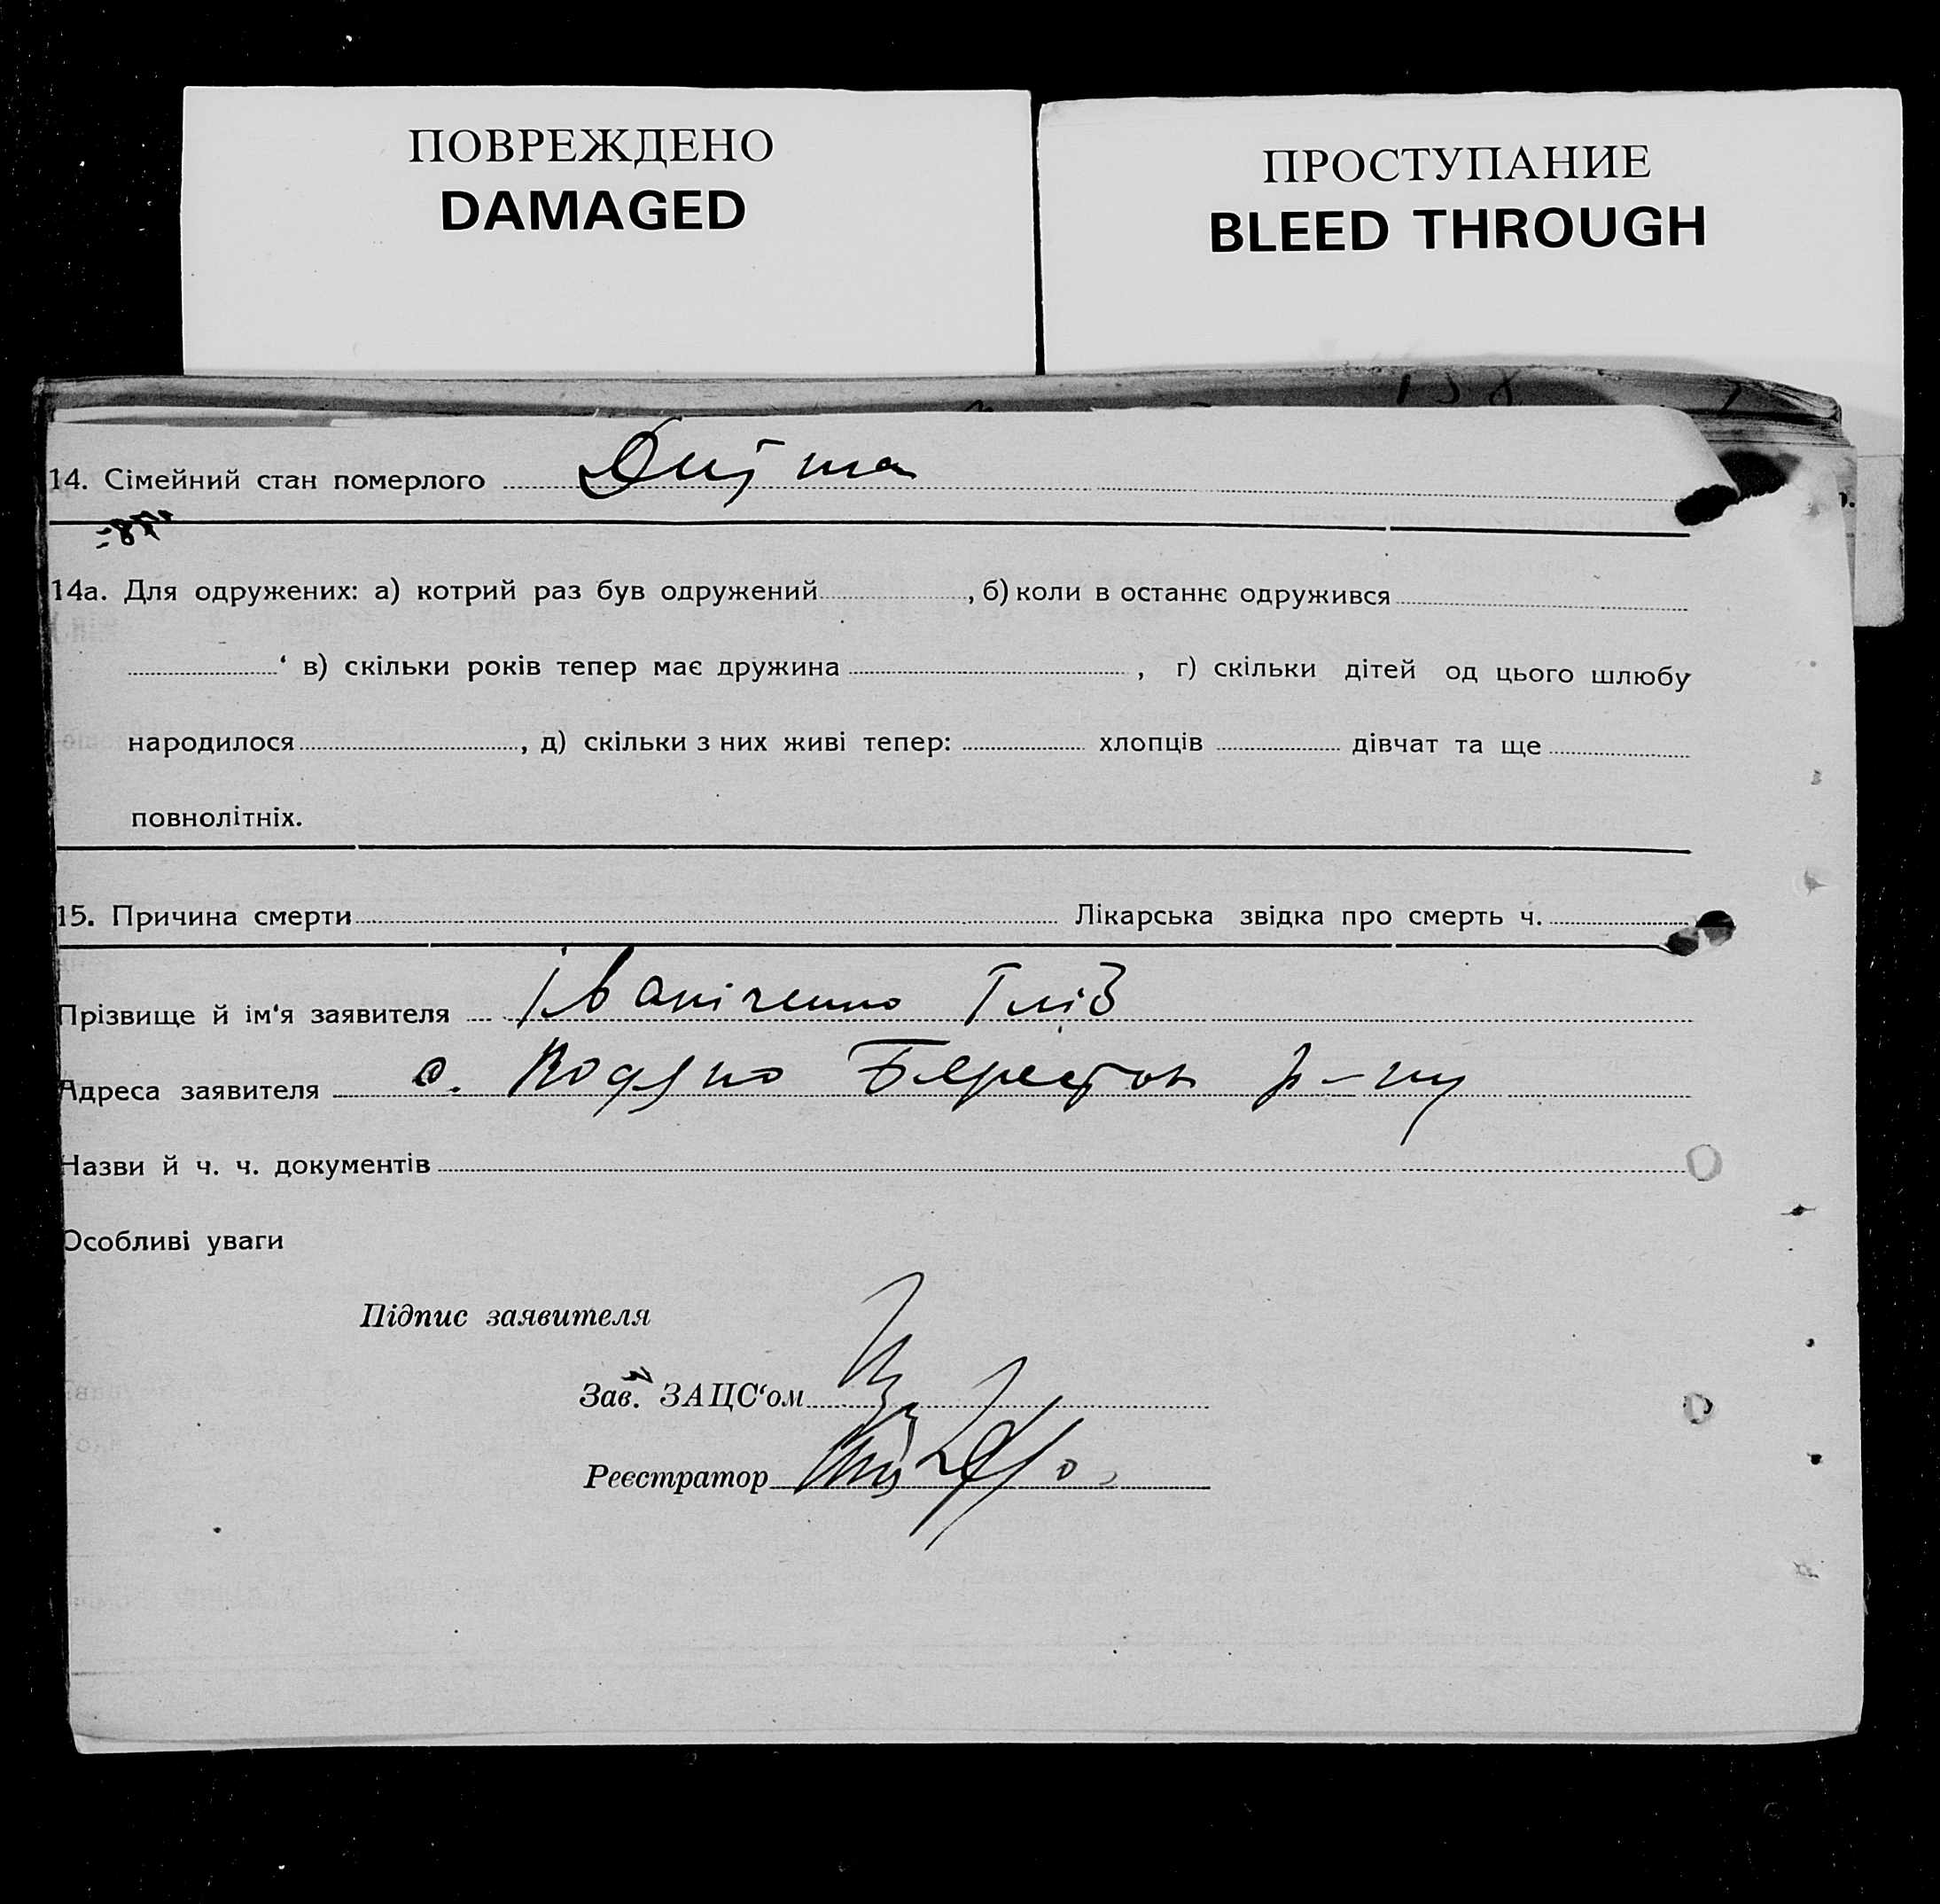 ПОВРЕЖДЕНО
DAMAGED
ПРОСТУПАНИЕ
BLEED THROUGH
138
14. Сімейний стан померлого
14а. Для одружених: а) котрий раз був одружений , б) коли в останнє одружився
‘ в) скільки років тепер має дружина , г) скільки дітей од цього шлюбу
народилося , д) скільки з них живі тепер: хлопців дівчат та ще
повнолітніх.
15. Причина смерти Лікарська звідка про смерть ч.
Прізвище й ім‘я заявителя Іваніченко Гліб
Адреса заявителя с. Водяно р-ну
Назви й ч. ч. документів
Особливі уваги
Підпис заявителя
Зав. ЗАЦС‘ом
Реєстратор